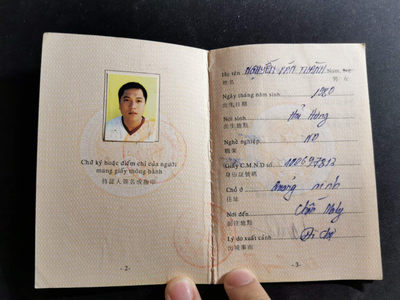 Chữ ký hoặc điểm chỉ của người
mang giấy thông hành
持証人簽名或拇印
- 2 -
Họ tên NGUYỄN VĂN THÀNH Nam,
姓名 男 女
Ngày tháng năm sinh
出生日期
Nơi sinh Hải
出生地點
Nghề nghiệp
職業
Giấy C.M.N.D số
身份証號碼
Chỗ ở Quảng Ninh
住址
Nơi đến
前往地點
Lý do xuất cảnh Đi chợ
出境事由
- 3 -